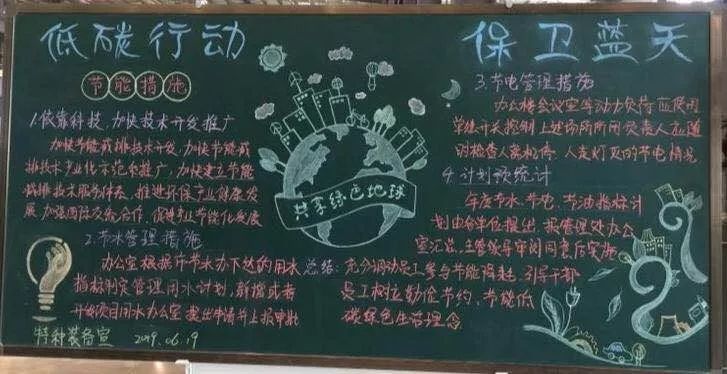 低碳行动 保卫蓝天
节能措施
1.依靠科技，加快技术开发推广
加快节能减排技术开发，加快节能减
排技术产业化示范和推广，加快建立节能
减排技术服务体系，推进环保产业健康发
展 加强国际交流合作，促进产业节能化发展
2.节水管理措施
办公室根据市节水办下达的用水
指标制定管理用水计划，新增或者
开始项目用水办公室 提出申请并上报审批
特种装备室 2019.06.19
共享绿色地球
3.节电管理措施
办公楼会议室等动力负荷应使用
单独开关控制 上述场所所间负责人应随
时检查人离机停、人走灯灭的节电情况
4.计划预统计
年度节水、节电、节油指标计
划由各单位提出，报管理处办公
室汇总，主管领导审阅同意后实施
总结：充分调动员工参与节能降耗，引导干部
员工树立勤俭节约，节能低
碳绿色生管理念